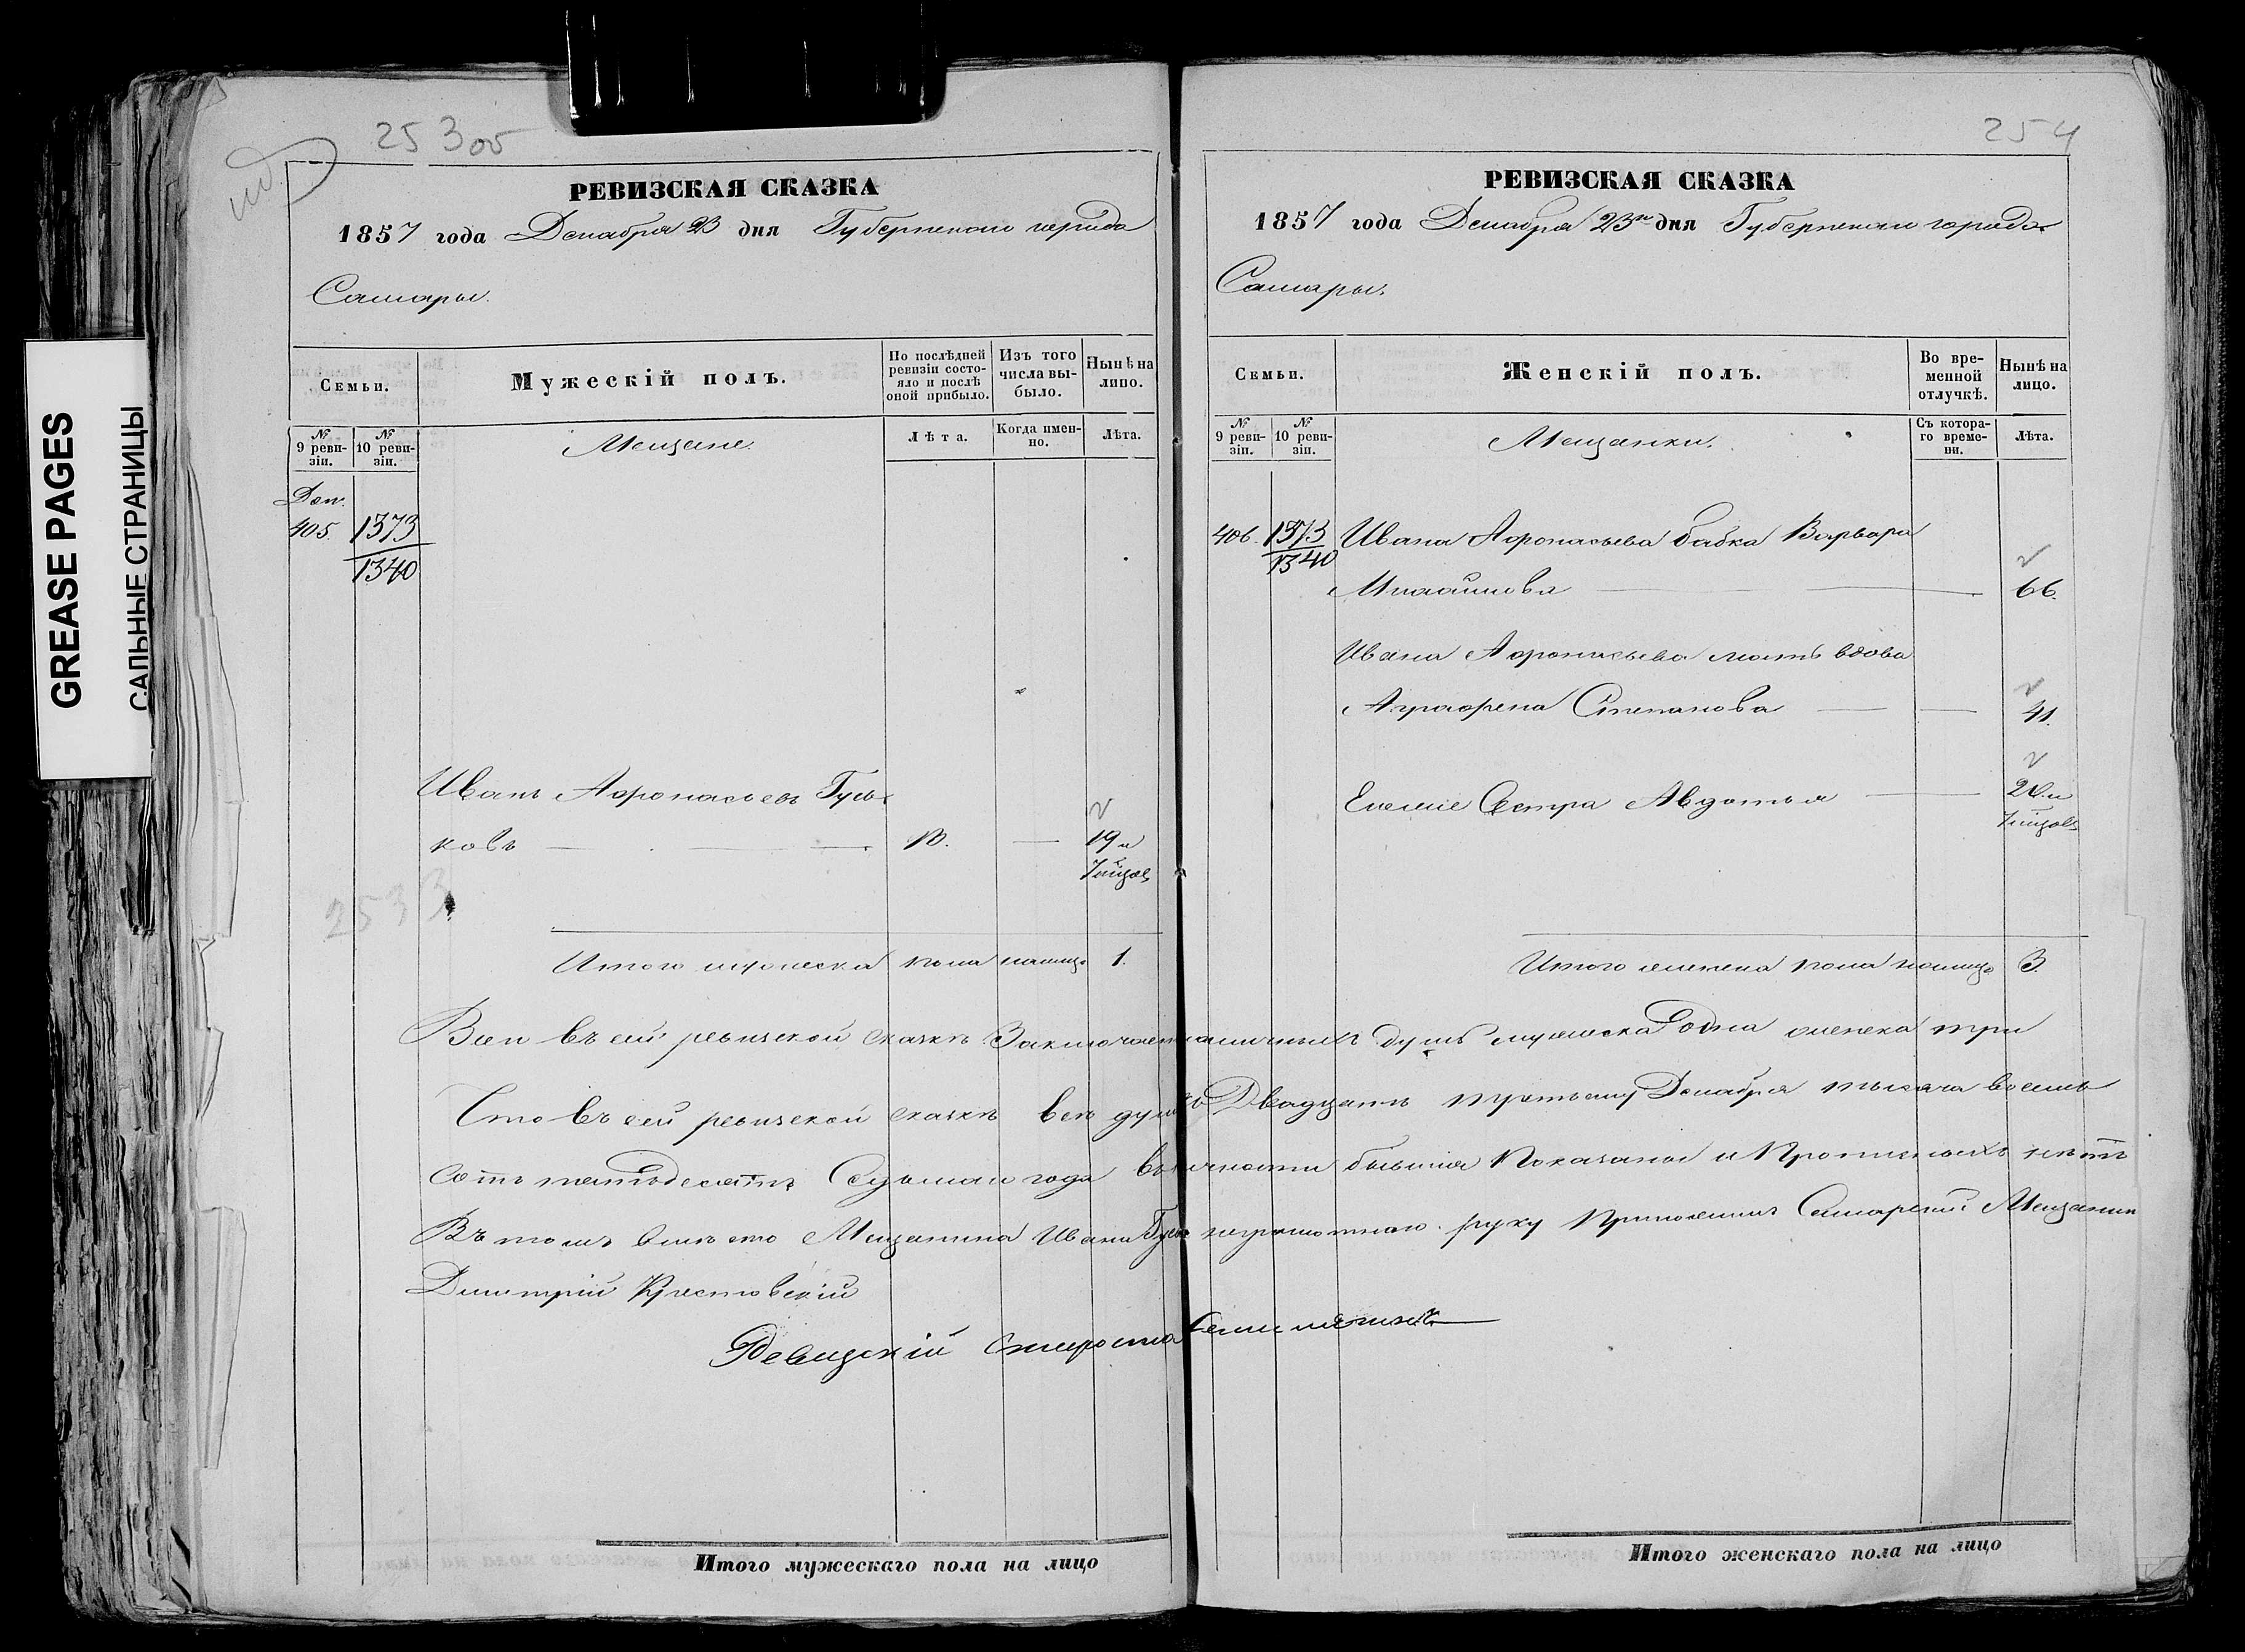 GREASE PAGES
САЛЬНЫЕ СТРАНИЦЫ
253 об
РЕВИЗСКАЯ СКАЗКА
1857 года Декабря 23 дня Губернскаго города
Самары.
Семьи.
Мужескій полъ.
По послѣдней ревизіи состояло и послѣ оной прибыло.
Изъ того числа выбыло.
Нынѣ на лицо.
№ 9 ревизіи.
№ 10 ревизіи.
Мещане.
Лѣта.
Когда именно.
Лѣта.
Доп.
405. 1373
1340
Иванъ Афонасьевъ Гусь-
ковъ — 10. — 19 и
7 мѣсяц
2533
Итого мужеска пола налицо 1.
254
РЕВИЗСКАЯ СКАЗКА
1857 года Декабря 23го дня Губернскаго города
Самары.
Семьи.
Женскій полъ.
Во временной отлучкѣ.
Нынѣ на лицо.
№ 9 ревизіи.
№ 10 ревизіи.
Мещанки.
Съ котораго времени.
Лѣта.
406. 1373 Ивана Афонасьева бабка Варвара
1340
Михайлова — 66.
Ивана Афонасьева мать вдова
Аграфена Степанова — — 41.
Ево же Сестра Авдотья — 20 и
7 мѣсяц
Итого женска пола налицо 3.
Всего въ сей ревизской сказкѣ Заключается наличныхъ душъ мужеска одна женска три
Что въ сей ревизской сказкѣ всѣ души къ Двадцать третьему Декабря тысяча восемь
сотъ пятьдесятъ Седьмаго года въ личности бывшія Показаны и Прописныхъ нѣтъ
Въ томъ вмѣсто Мещанина Ивана Гуськова неграмотнаго руку Приложилъ Самарскій Мещанинъ
Дмитрій Крестовскій
Ревизскій Староста
Итого мужескаго пола на лицо
Итого женскаго пола на лицо